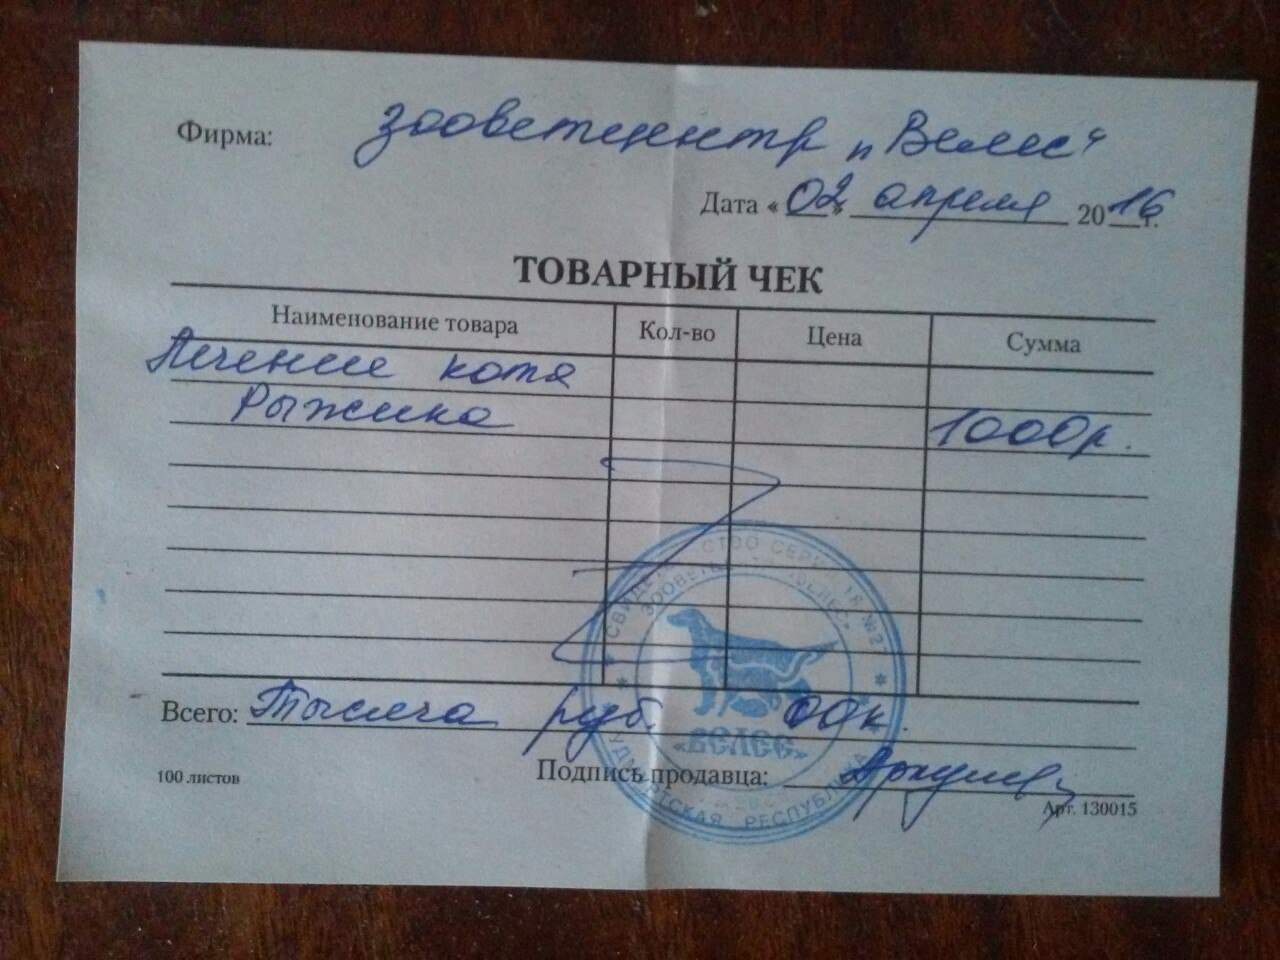 Фирма: Зооветцентр „Велес“
Дата «02» апреля 2016 г.
ТОВАРНЫЙ ЧЕК
Наименование товара Кол-во Цена Сумма
Лечение котя
Рыжика 1000р.
Всего: Тысяча руб. 00к.
100 листов
Подпись продавца:
Арт. 130015
ЗООВЕТЦЕНТР «ВЕЛЕС»
«ВЕЛЕС»
УДМУРТСКАЯ РЕСПУБЛИКА